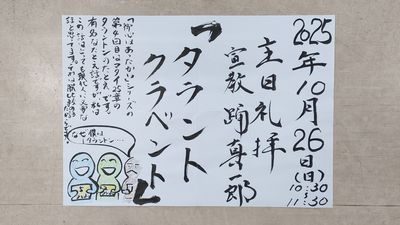 2025年10月26日(日)
10:30
11:30
主日礼拝
宣教 踊真一郎
『タラント
クラベント』
「下心はあったかい」シリーズの
第4回目はマタイ25章の
タラントンのたとえです。
有名なたとえ話ですが私は
この話はとても現代人に必要な
話と思ってます。それは
なぜ僕は
1タラントン…